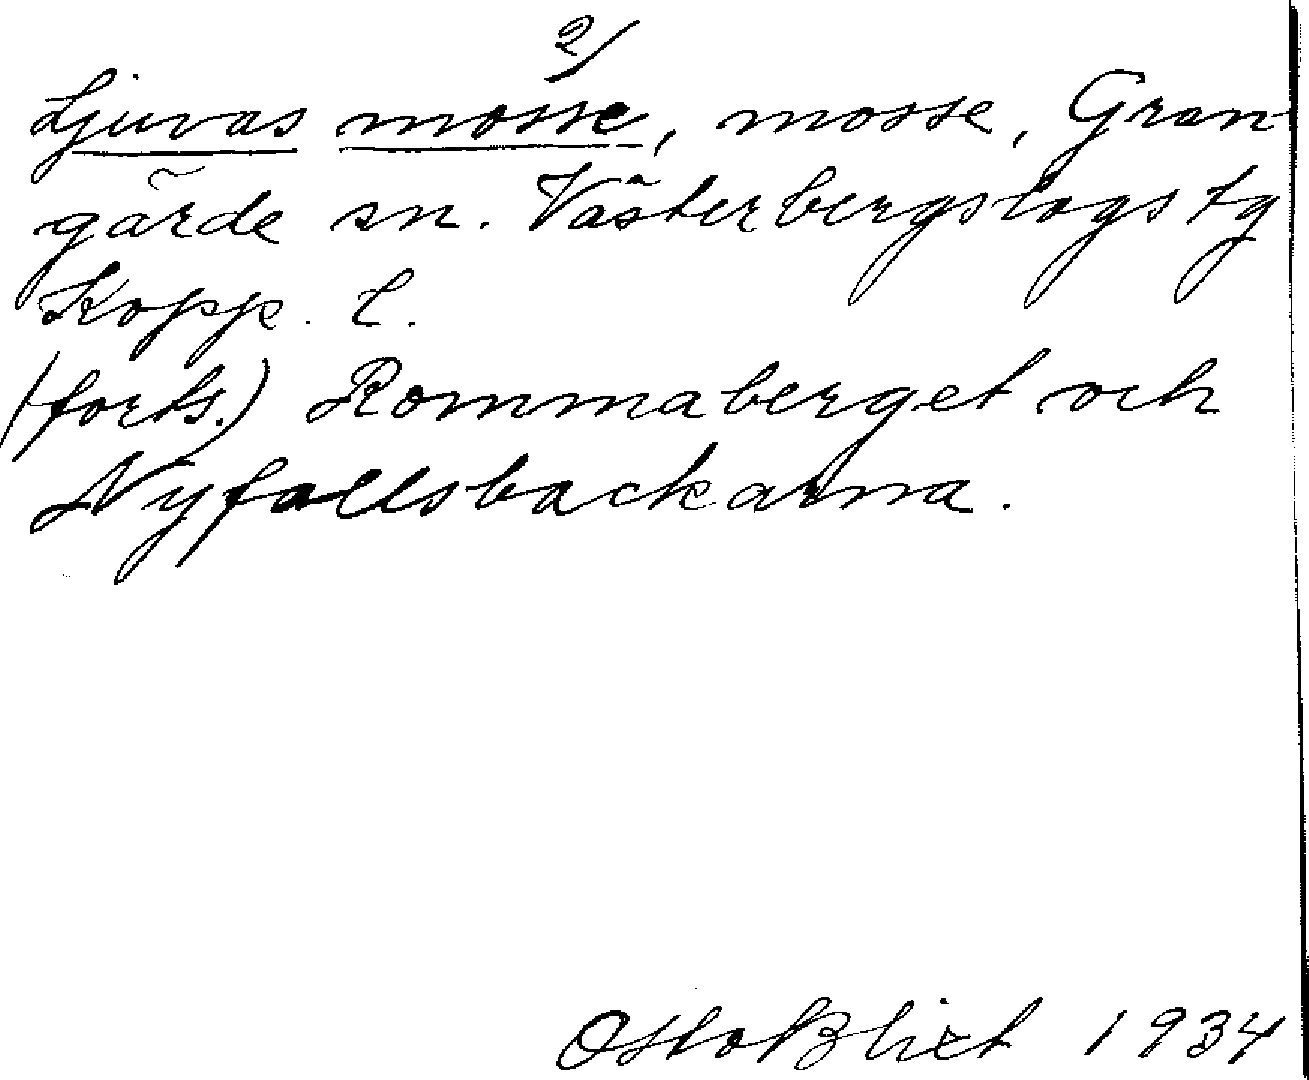 2/
Ljuvas mosse, mosse, Gran-
gärde sn. Västerbergslags tg
Kopp. l.
(forts.) Rommaberget och
Nyfallsbackarna.
Otto Blixt 1934